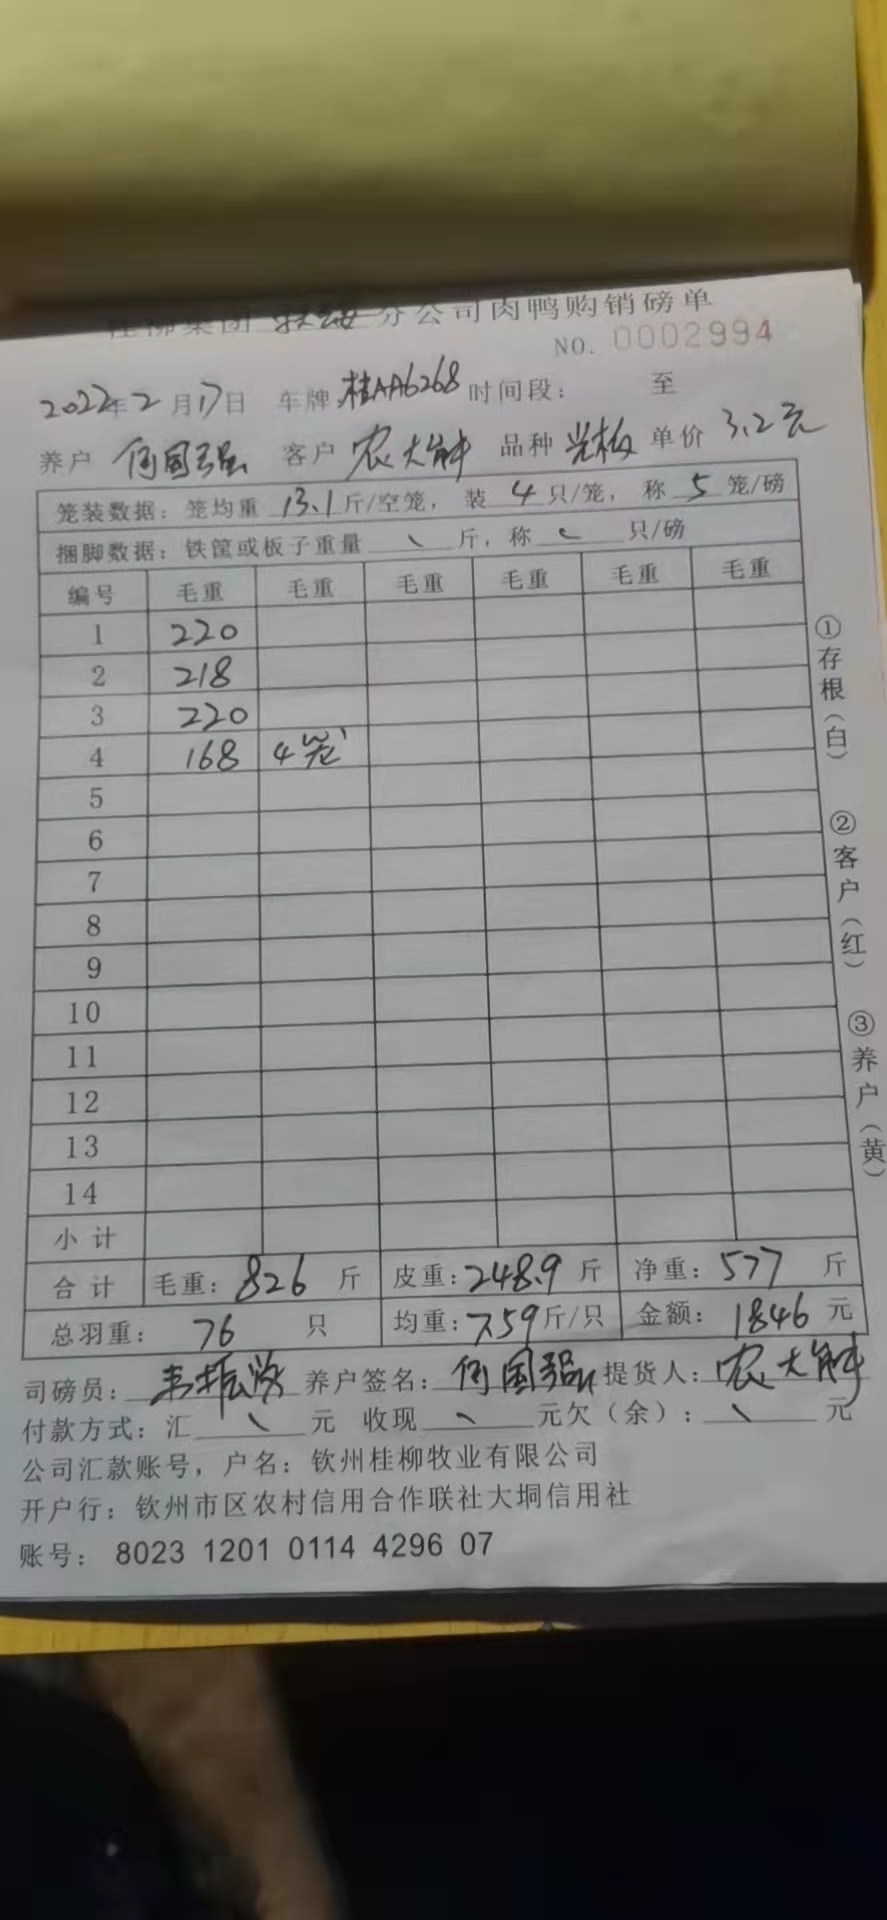 桂柳集团 扶绥 分公司肉鸭购销磅单
NO. 0002994
2022年2月17日 车牌 桂AA6268 时间段： 至
养户 何国强 客户 农大能 品种 光板 单价 3.2元
笼装数据：笼均重 13.1 斤/空笼，装 4 只/笼，称 5 笼/磅
捆脚数据：铁筐或板子重量 斤，称 只/磅
编号 毛重 毛重 毛重 毛重 毛重 毛重
1 220
2 218
3 220
4 168 4笼
5
6
7
8
9
10
11
12
13
14
小计
合计 毛重：826 斤 皮重：248.9 斤 净重：577 斤
总羽重：76 只 均重：7.59斤/只 金额：1846 元
司磅员： 养户签名：何国强 提货人：农大能
付款方式：汇 元 收现 元欠（余）： 元
公司汇款账号，户名：钦州桂柳牧业有限公司
开户行：钦州市区农村信用合作联社大垌信用社
账号：8023 1201 0114 4296 07
①存根（白）
②客户（红）
③养户（黄）